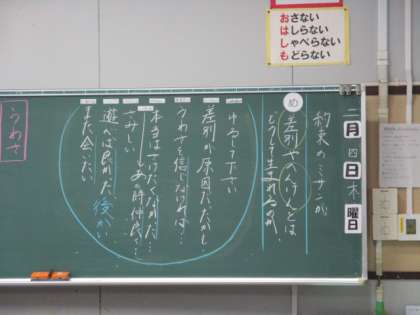 おさない
はしらない
しゃべらない
もどらない
二月四日木曜日
約束のミサンガ
め 差別やへんけんとは
どうして生まれるのか。
ゆるして下さい
差別が原因だったかも
うわさを信じなければ…
本当はさけたくなかった…
さみしい
あの時仲良く…
遊べば良かった 後かい
また会いたい。
うわさ